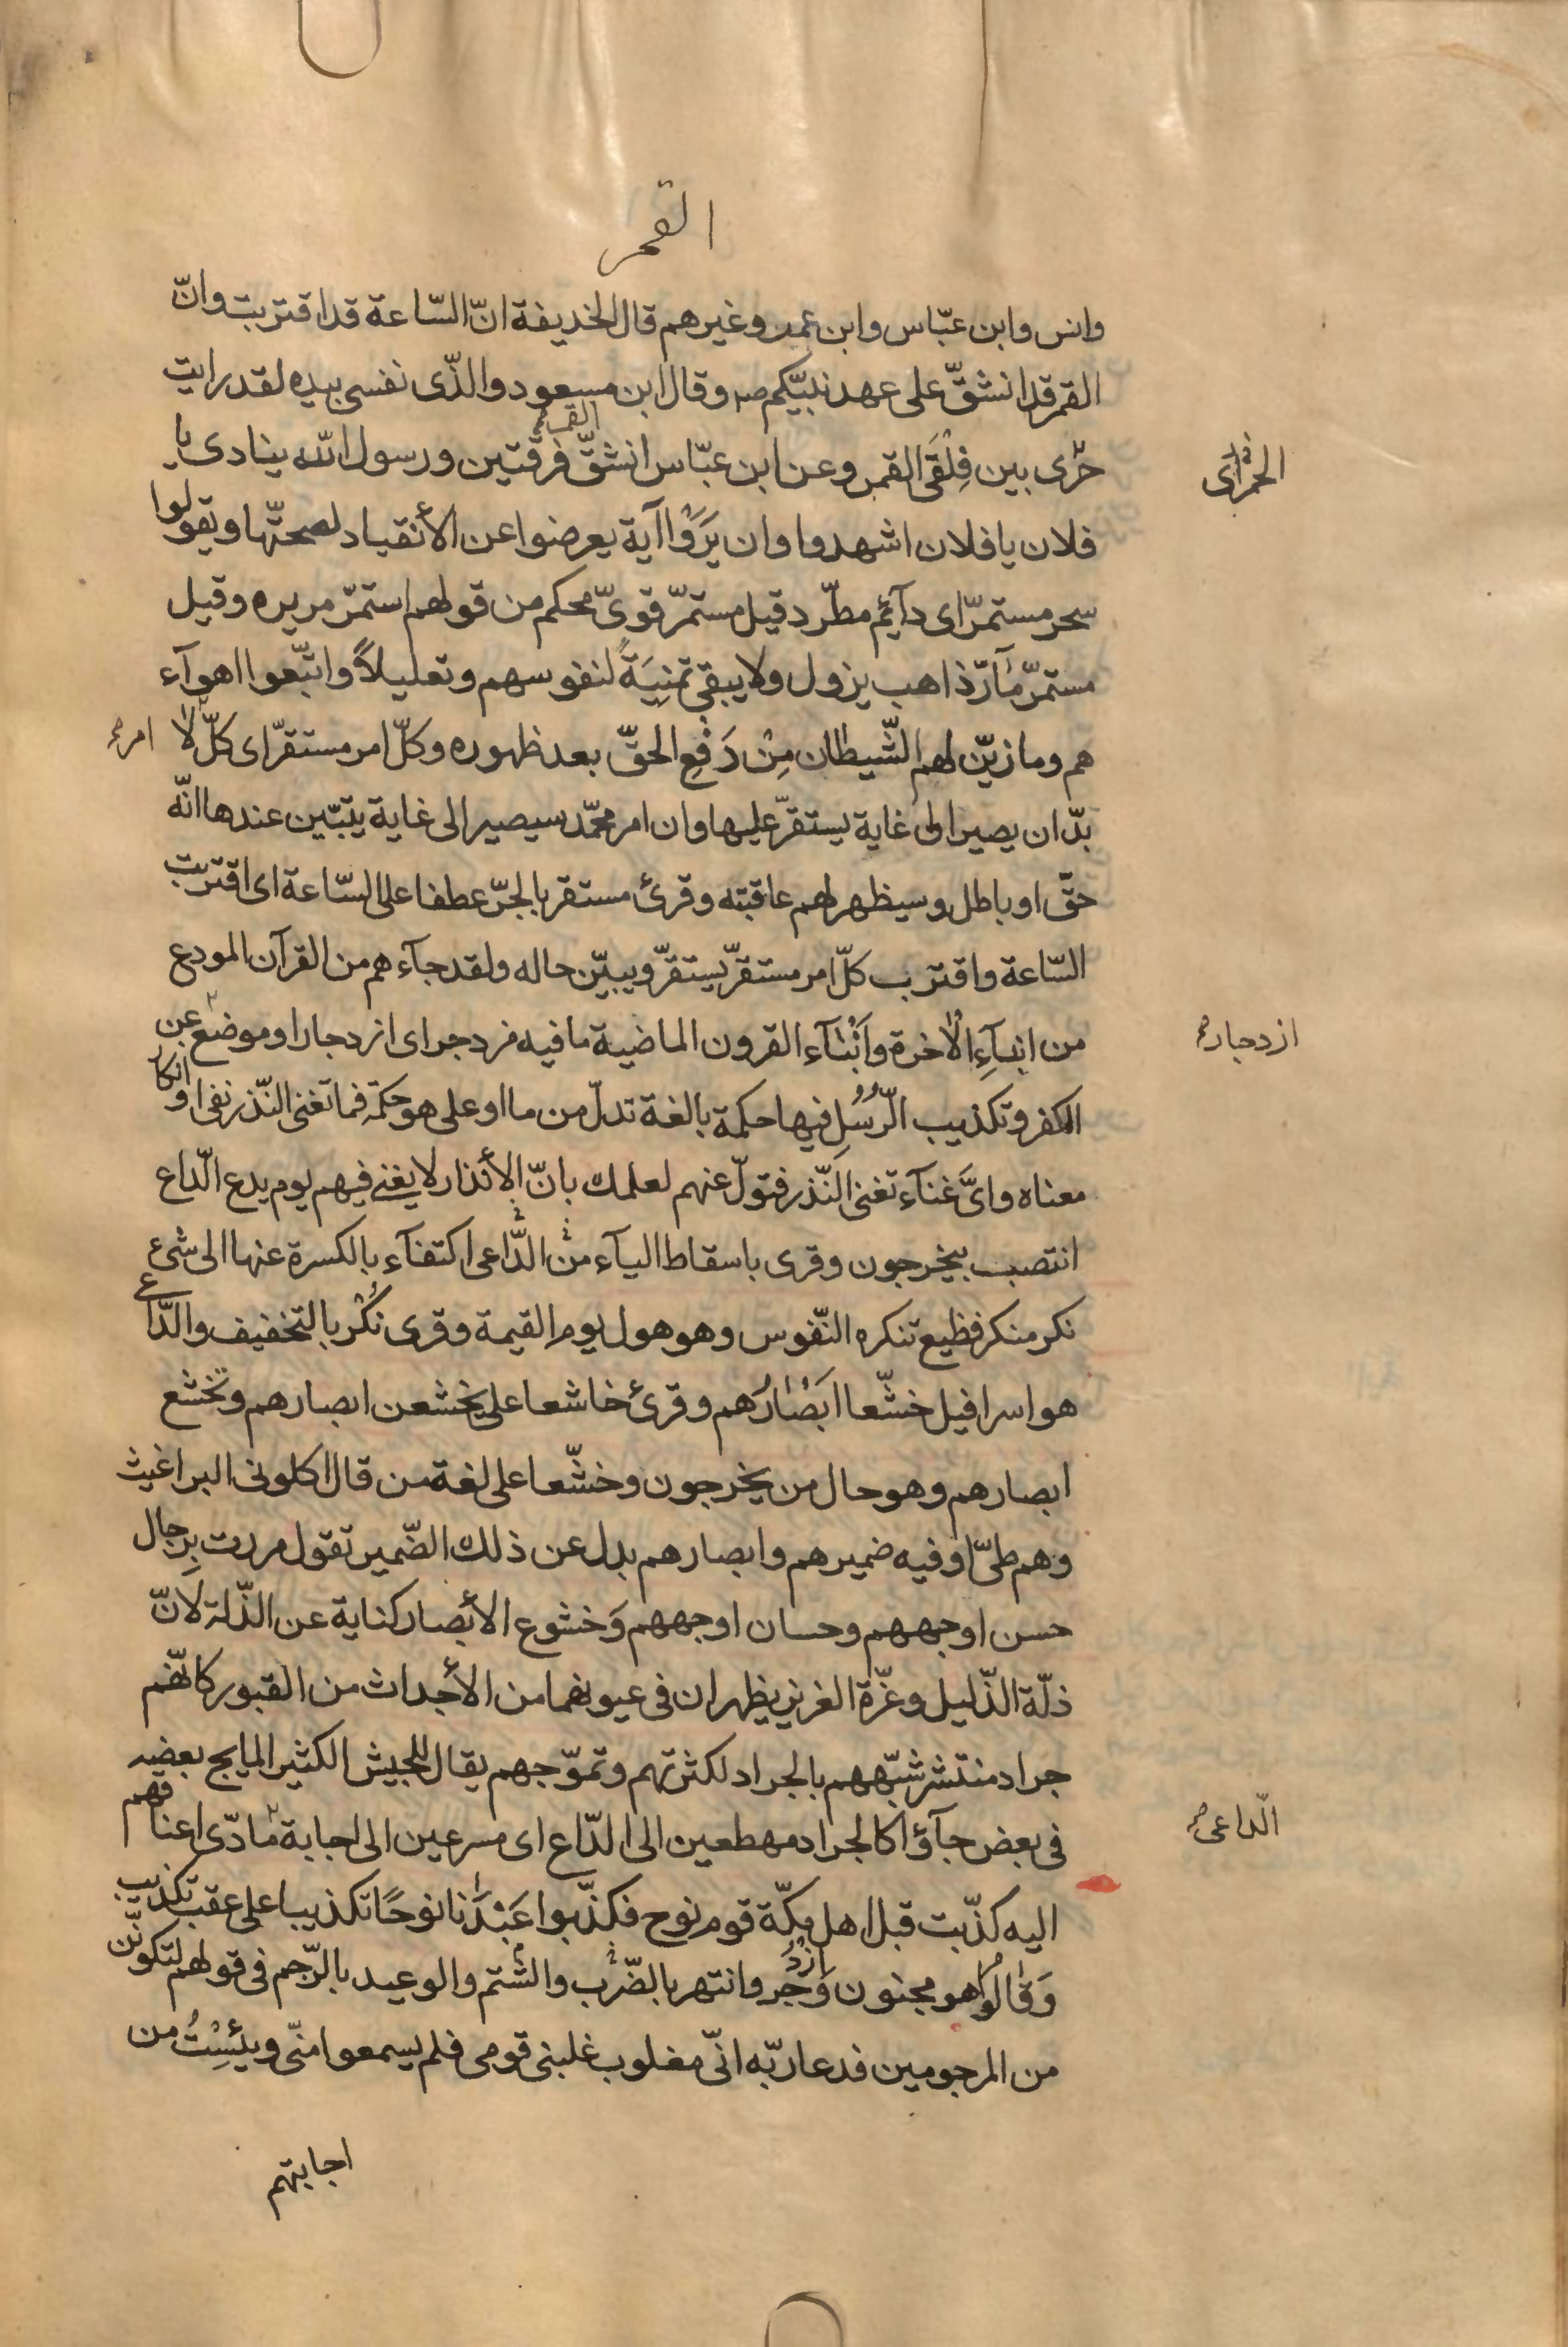 القمر
وانس وابن عبّاس وابن عمر وغيرهم قال الخديفة انّ السّاعة قد اقتربت وانّ
القمر قد انشقّ على عهد نبيّكم ص وقال ابن مسعود والذّى نفسى بيده لقد رايت
حرّى بين فِلْقَى القمر وعن ابن عبّاس انشقّ القمر فرقتين ورسول الله ينادى يا
فلان يا فلان اشهدوا وان يَرَوْا آية يعرضوا عن الأنقياد لصحتّها ويقولوا
سحر مستمرّ اى دآئم مطّرد قيل مستمرّ قوىّ محكم من قولهم استمرّ مريره وقيل
مستمرّ مٰآرّ ذاهب يزول ولا يبقى تمنِيَةً لنفوسهم وتعليلاً واتبّعوا اهوآء
هم وما زيّن لهم الشّيطان مِنْ دَفْعِ الحقّ بعد ظهوره وكلّ امر مستقرّ اى كلّ لا
بدّ ان يصير الى غاية يستقرّ عليها وان امر محمّد سيصير الى غاية يتبّين عندها انّه
حقّ او باطل وسيظهر لهم عاقبته وقرئ مستقر بالجرّ عطفا على السّاعة اى اقتربت
السّاعة واقترب كلّ امر مستقرّ يستقرّ ويبيّن حاله ولقد جآءهم من القرآن المودع
من انبآءِ الآخرة وَاَنْبٰآء القرون الماضية ما فيه مزدجر اى ازدجار او موضع عن
الكفر وتكذيب الرّسُلِ فيها حكمة بالغة تدلّ من ما او على هو حكمة فما تغنى النّذر نفى او انكار
معناه واىَّ غنآء تغنى النّذر فتولّ عنهم لعلمك بانّ الأنذار لا يغنى فيهم يوم يدع الدّاع
انتصب بيخرجون وقرى باسقاط اليآء من الدّاعى اكتفآء بالكسرة عنها الى شئ
نكر منكر فظيع تنكره النّفوس وهو هول يوم القيمة وقرى نُكْر بالتخفيف والدّاع
هو اسرافيل خشّعا اَبْصٰارُهم وقرئ خاشعا على يخشعن ابصارهم وتخشع
ابصارهم وهو حال من يخرجون وخشّعا على لغة من قال اكلونى البراغيث
وهم طىّ او فيه ضميرهم وابصارهم بدل عن ذلك الضّمير تقول مررت بِرجال
حسن اوجههم وحسان اوجههم وَخشوع الأبصار كناية عن الذّلة لانّ
ذلّة الذّليل وعزّة العزيز يظهران فى عيونهما من الأجداث من القبور كانّهم
جراد منتشر شبّههم بالجراد لكثرتهم وتموّجهم يقال للجيش الكثير المايج بعضه
فى بعض جآؤا كالجراد مهطعين الى الدّاع اى مسرعين الى اجابة مادّى اعناقهم
اليه كذّبت قبل اهل مكّة قوم نوح فكذّبوا عَبْدَنا نوحًا تكذيبا على عقب تكذيب
وَقٰالُوا هو مجنون وَازْدُجر وانتهر بالضّرب والشّتم والوعيد بالرّجم فى قولهم لتكوننّ
من المرجومين فدعا ربّه انّى مغلوب غلبنى قومى فلم يسمعوا منّى ويئِسْتُ من
اجابتهم
امر
ازدجار
الدّاعى